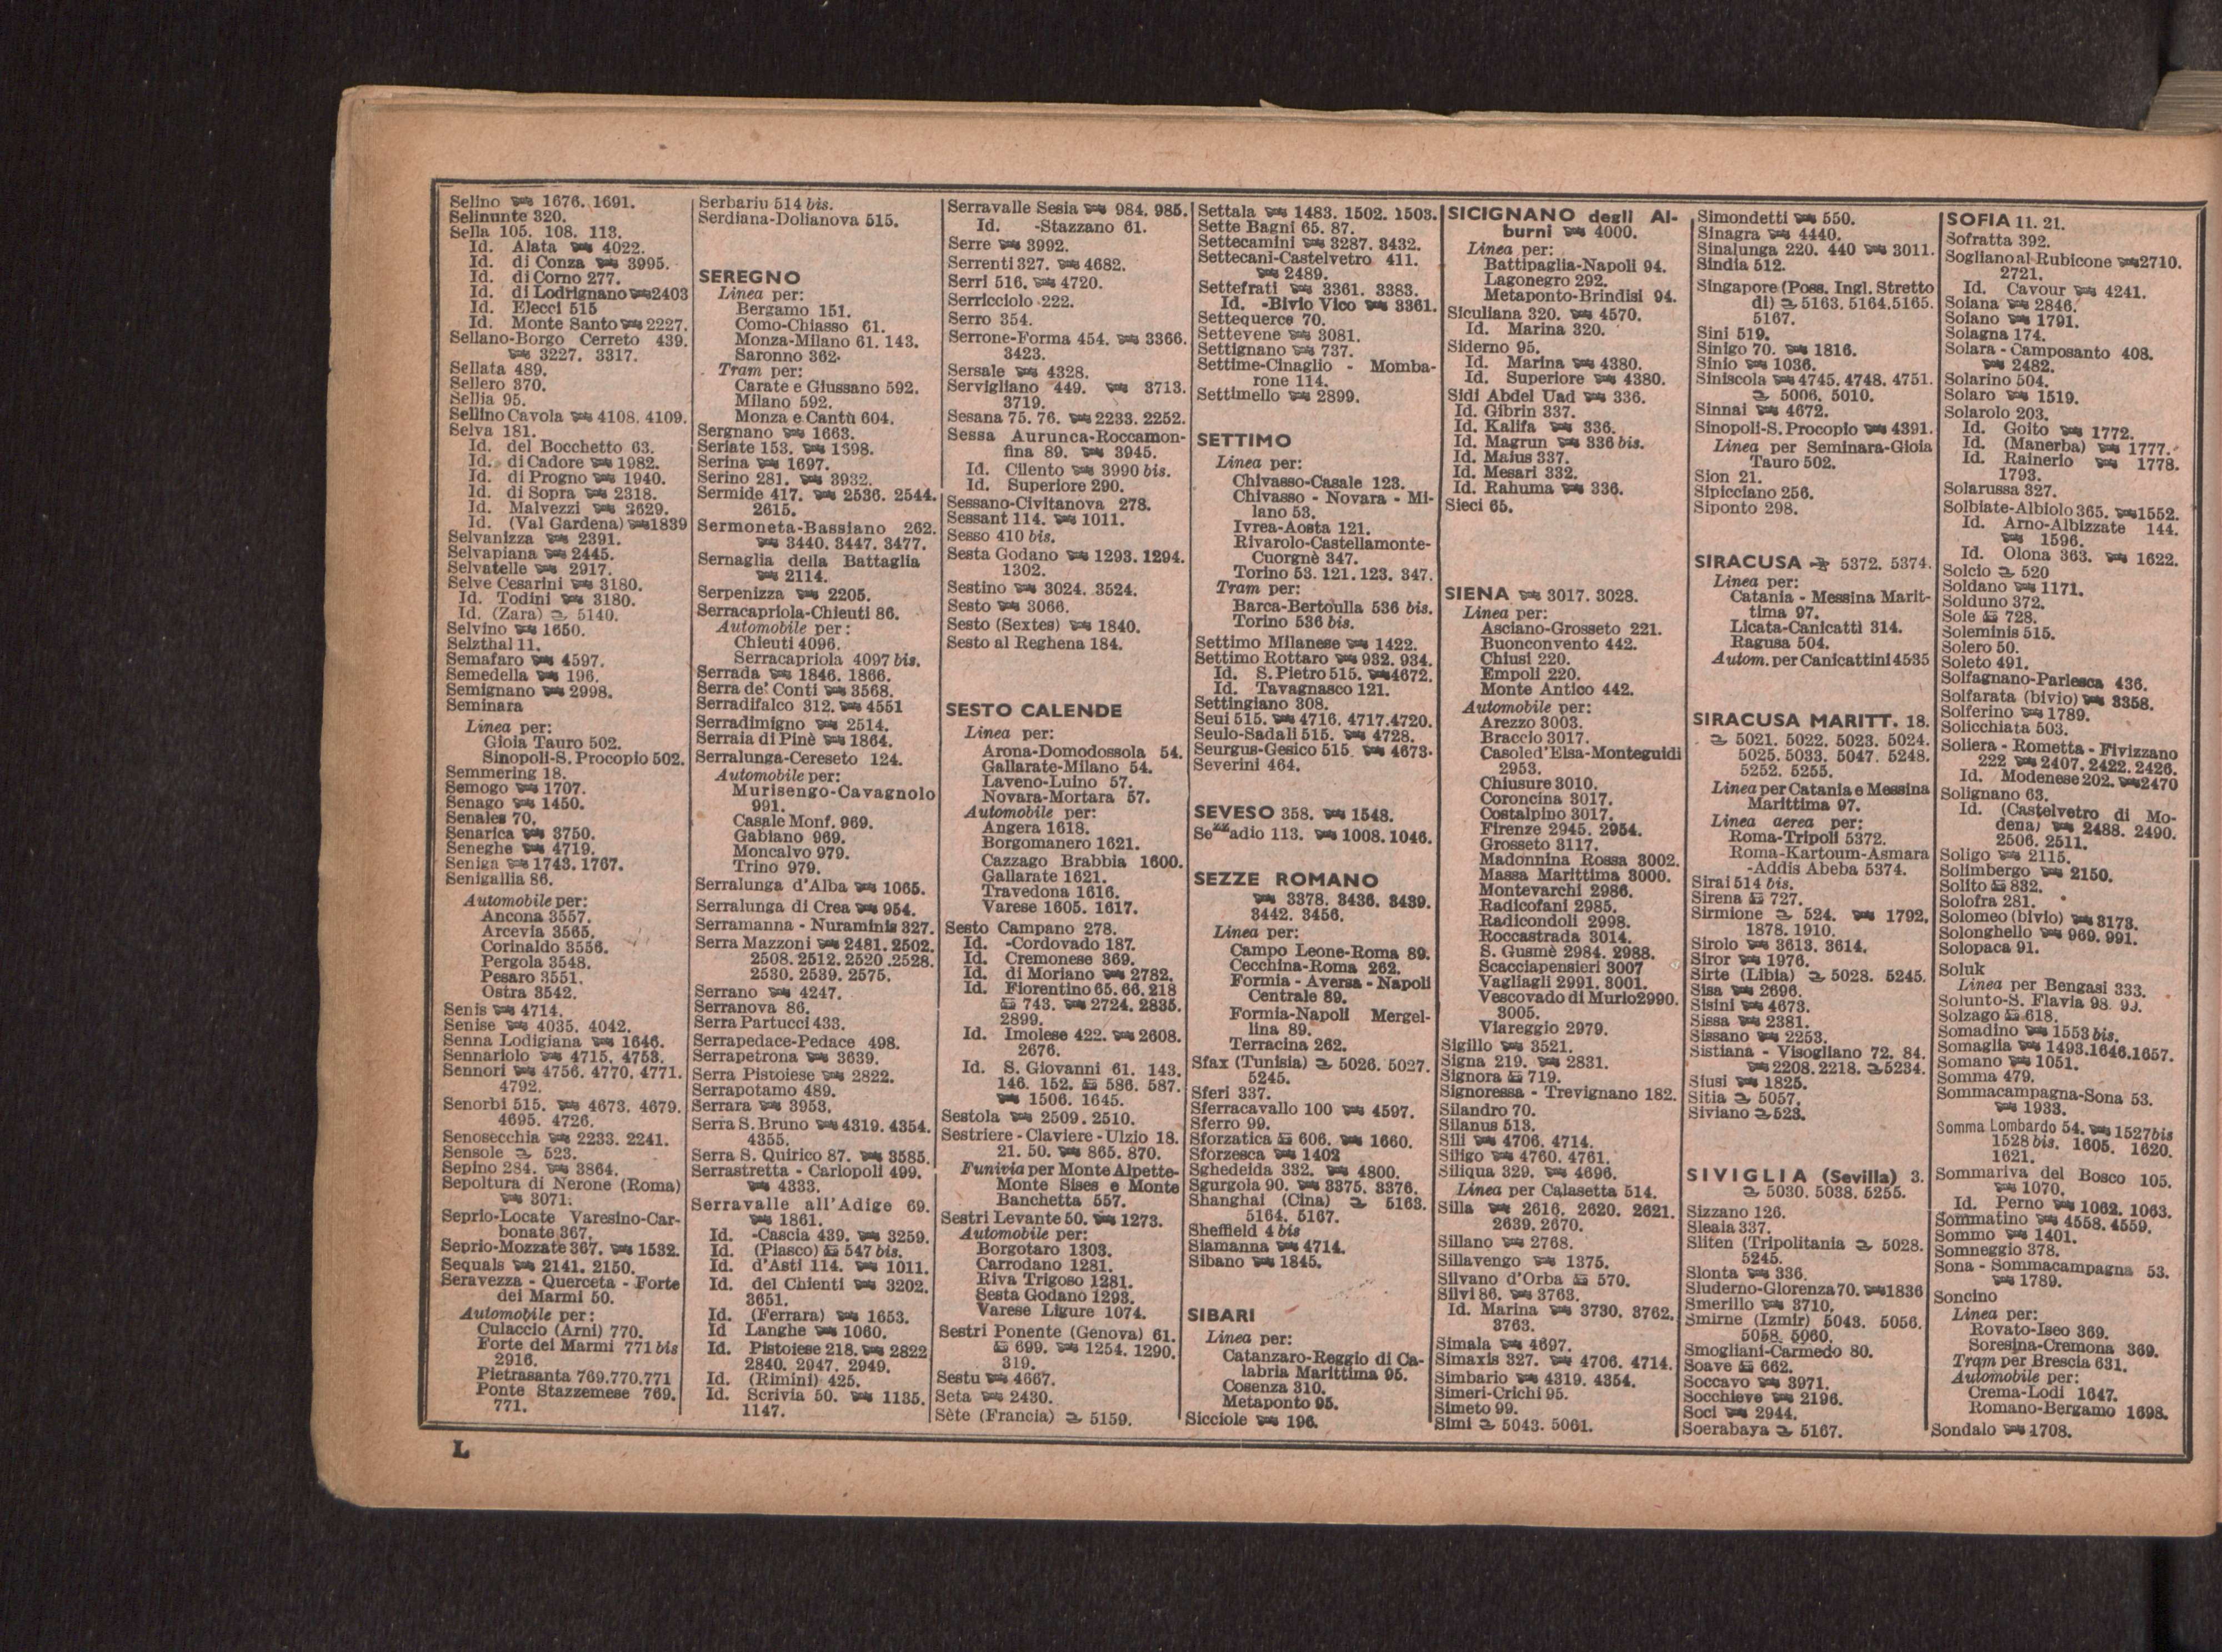 Selino 1676. 1691.
Selinunte 320.
Sella 105. 108. 113.
Id. Alata 4022.
Id. di Conza 3995.
Id. di Corno 277.
Id. di Lodrignano 2403
Id. Elecci 515
Id. Monte Santo 2227.
Sellano-Borgo Cerreto 439.
3227. 3317.
Sellata 489.
Sellero 370.
Sellia 95.
Sellino Cavola 4108. 4109.
Selva 181.
Id. del Bocchetto 63.
Id. di Cadore 1982.
Id. di Progno 1940.
Id. di Sopra 2318.
Id. Malvezzi 2629.
Id. (Val Gardena) 1839
Selvanizza 2391.
Selvapiana 2445.
Selvatelle 2917.
Selve Cesarini 3180.
Id. Todini 3180.
Id. (Zara) 5140.
Selvino 1650.
Selzthal 11.
Semafaro 4597.
Semedella 196.
Semignano 2998.
Seminara
Linea per:
Gioia Tauro 502.
Sinopoli-S. Procopio 502.
Semmering 18.
Semogo 1707.
Senago 1450.
Senales 70.
Senarica 3750.
Seneghe 4719.
Seniga 1743. 1767.
Senigallia 86.
Automobile per:
Ancona 3557.
Arcevia 3565.
Corinaldo 3556.
Pergola 3548.
Pesaro 3551.
Ostra 3542.
Senis 4714.
Senise 4035. 4042.
Senna Lodigiana 1646.
Sennariolo 4715. 4753.
Sennori 4756. 4770. 4771.
4792.
Senorbì 515. 4673. 4679.
4695. 4726.
Senosecchia 2233. 2241.
Sensole 523.
Sepino 284. 3864.
Sepoltura di Nerone (Roma)
3071.
Seprio-Locate Varesino-Car-
bonate 367.
Seprio-Mozzate 367. 1532.
Sequals 2141. 2150.
Seravezza - Querceta - Forte
dei Marmi 50.
Automobile per:
Culaccio (Arni) 770.
Forte dei Marmi 771 bis
2916.
Pietrasanta 769.770.771
Ponte Stazzemese 769.
771.
Serbariu 514 bis.
Serdiana-Dolianova 515.
SEREGNO
Linea per:
Bergamo 151.
Como-Chiasso 61.
Monza-Milano 61. 143.
Saronno 362.
Tram per:
Carate e Giussano 592.
Milano 592.
Monza e Cantù 604.
Sergnano 1663.
Seriate 153. 1398.
Serina 1697.
Serino 281. 3932.
Sermide 417. 2536. 2544.
2615.
Sermoneta-Bassiano 262.
3440. 3447. 3477.
Sernaglia della Battaglia
2114.
Serpenizza 2205.
Serracapriola-Chieuti 86.
Automobile per:
Chieuti 4096.
Serracapriola 4097 bis.
Serrada 1846. 1866.
Serra de' Conti 3568.
Serradifalco 312. 4551
Serradimigno 2514.
Serraia di Pinè 1864.
Serralunga-Cereseto 124.
Automobile per:
Murisengo-Cavagnolo
991.
Casale Monf. 969.
Gabiano 969.
Moncalvo 979.
Trino 979.
Serralunga d'Alba 1065.
Serralunga di Crea 954.
Serramanna - Nuraminis 327.
Serra Mazzoni 2481. 2502.
2508. 2512. 2520 .2528.
2530. 2539. 2575.
Serrano 4247.
Serranova 86.
Serra Partucci 433.
Serrapedace-Pedace 498.
Serrapetrona 3639.
Serra Pistoiese 2822.
Serrapotamo 489.
Serrara 3953.
Serra S. Bruno 4319. 4354.
4355.
Serra S. Quirico 87. 3585.
Serrastretta - Carlopoli 499.
4333.
Serravalle all'Adige 69.
1861.
Id. -Cascia 439. 3259.
Id. (Piasco) 547 bis.
Id. d'Asti 114. 1011.
Id. del Chienti 3202.
3651.
Id. (Ferrara) 1653.
Id Langhe 1060.
Id. Pistoiese 218. 2822
2840. 2947. 2949.
Id. (Rimini) 425.
Id. Scrivia 50. 1135.
1147.
Serravalle Sesia 984. 985.
Id. -Stazzano 61.
Serre 3992.
Serrenti 327. 4682.
Serri 516. 4720.
Serricciolo 222.
Serro 354.
Serrone-Forma 454. 3366.
3423.
Sersale 4328.
Servigliano 449. 3713.
3719.
Sesana 75. 76. 2233. 2252.
Sessa Aurunca-Roccamon-
fina 89. 3945.
Id. Cilento 3990 bis.
Id. Superiore 290.
Sessano-Civitanova 278.
Sessant 114. 1011.
Sesso 410 bis.
Sesta Godano 1293. 1294.
1302.
Sestino 3024. 3524.
Sesto 3066.
Sesto (Sextes) 1840.
Sesto al Reghena 184.
SESTO CALENDE
Linea per:
Arona-Domodossola 54.
Gallarate-Milano 54.
Laveno-Luino 57.
Novara-Mortara 57.
Automobile per:
Angera 1618.
Borgomanero 1621.
Cazzago Brabbia 1600.
Gallarate 1621.
Travedona 1616.
Varese 1605. 1617.
Sesto Campano 278.
Id. -Cordovado 187.
Id. Cremonese 369.
Id. di Moriano 2782.
Id. Fiorentino 65. 66. 218
743. 2724. 2835.
2899.
Id. Imolese 422. 2608.
2676.
Id. S. Giovanni 61. 143.
146. 152. 586. 587.
1506. 1645.
Sestola 2509. 2510.
Sestriere - Claviere - Ulzio 18.
21. 50. 865. 870.
Funivia per Monte Alpette-
Monte Sises e Monte
Banchetta 557.
Sestri Levante 50. 1273.
Automobile per:
Borgotaro 1303.
Carrodano 1281.
Riva Trigoso 1281.
Sesta Godano 1293.
Varese Ligure 1074.
Sestri Ponente (Genova) 61.
699. 1254. 1290.
319.
Sestu 4667.
Seta 2430.
Sète (Francia) 5159.
Settala 1483. 1502. 1503.
Sette Bagni 65. 87.
Settecamini 3287. 3432.
Settecani-Castelvetro 411.
2489.
Settefrati 3361. 3383.
Id. -Bivio Vico 3361.
Settequerce 70.
Settevene 3081.
Settignano 737.
Settime-Cinaglio - Momba-
rone 114.
Settimello 2899.
SETTIMO
Linea per:
Chivasso-Casale 123.
Chivasso - Novara - Mi-
lano 53.
Ivrea-Aosta 121.
Rivarolo-Castellamonte-
Cuorgnè 347.
Torino 53. 121. 123. 347.
Tram per:
Barca-Bertoulla 536 bis.
Torino 536 bis.
Settimo Milanese 1422.
Settimo Rottaro 932. 934.
Id. S. Pietro 515. 4672.
Id. Tavagnasco 121.
Settingiano 308.
Seui 515. 4716. 4717.4720.
Seulo-Sadali 515. 4728.
Seurgus-Gesico 515. 4673.
Severini 464.
SEVESO 358. 1548.
Sezzadio 113. 1008. 1046.
SEZZE ROMANO
3378. 3436. 3439.
3442. 3456.
Linea per:
Campo Leone-Roma 89.
Cecchina-Roma 262.
Formia - Aversa - Napoli
Centrale 89.
Formia-Napoli Mergel-
lina 89.
Terracina 262.
Sfax (Tunisia) 5026. 5027.
5245.
Sferi 337.
Sferracavallo 100 4597.
Sferro 99.
Sforzatica 606. 1660.
Sforzesca 1402
Sghedeida 332. 4800.
Sgurgola 90. 3375. 3376.
Shanghai (Cina) 5163.
5164. 5167.
Sheffield 4 bis
Siamanna 4714.
Sibano 1845.
SIBARI
Linea per:
Catanzaro-Reggio di Ca-
labria Marittima 95.
Cosenza 310.
Metaponto 95.
Sicciole 196.
SICIGNANO degli Al-
burni 4000.
Linea per:
Battipaglia-Napoli 94.
Lagonegro 292.
Metaponto-Brindisi 94.
Siculiana 320. 4570.
Id. Marina 320.
Siderno 95.
Id. Marina 4380.
Id. Superiore 4380.
Sidi Abdel Uad 336.
Id. Gibrin 337.
Id. Kalifa 336.
Id. Magrun 336 bis.
Id. Maius 337.
Id. Mesari 332.
Id. Rahuma 336.
Sieci 65.
SIENA 3017. 3028.
Linea per:
Asciano-Grosseto 221.
Buonconvento 442.
Chiusi 220.
Empoli 220.
Monte Antico 442.
Automobile per:
Arezzo 3003.
Braccio 3017.
Casole d'Elsa-Monteguidi
2953.
Chiusure 3010.
Coroncina 3017.
Costalpino 3017.
Firenze 2945. 2954.
Grosseto 3117.
Madonnina Rossa 3002.
Massa Marittima 3000.
Montevarchi 2986.
Radicofani 2985.
Radicondoli 2998.
Roccastrada 3014.
S. Gusmè 2984. 2988.
Scacciapensieri 3007
Vagliagli 2991. 3001.
Vescovado di Murlo2990.
3005.
Viareggio 2979.
Sigillo 3521.
Signa 219. 2831.
Signora 719.
Signoressa - Trevignano 182.
Silandro 70.
Silanus 513.
Sili 4706. 4714.
Siligo 4760. 4761.
Siliqua 329. 4696.
Linea per Calasetta 514.
Silla 2616. 2620. 2621.
2639. 2670.
Sillano 2768.
Sillavengo 1375.
Silvano d'Orba 570.
Silvi 86. 3763.
Id. Marina 3730. 3762.
3763.
Simala 4697.
Simaxis 327. 4706. 4714.
Simbario 4319. 4354.
Simeri-Crichi 95.
Simeto 99.
Simi 5043. 5061.
Simondetti 550.
Sinagra 4440.
Sinalunga 220. 440 3011.
Sindia 512.
Singapore (Poss. Ingl. Stretto
di) 5163. 5164.5165.
5167.
Sini 519.
Sinigo 70. 1816.
Sinio 1036.
Siniscola 4745. 4748. 4751.
5006. 5010.
Sinnai 4672.
Sinopoli-S. Procopio 4391.
Linea per Seminara-Gioia
Tauro 502.
Sion 21.
Sipicciano 256.
Siponto 298.
SIRACUSA 5372. 5374.
Linea per:
Catania - Messina Marit-
tima 97.
Licata-Canicatti 314.
Ragusa 504.
Autom. per Canicattini 4535
SIRACUSA MARITT. 18.
5021. 5022. 5023. 5024.
5025. 5033. 5047. 5248.
5252. 5255.
Linea per Catania e Messina
Marittima 97.
Linea aerea per:
Roma-Tripoli 5372.
Roma-Kartoum-Asmara
-Addis Abeba 5374.
Sirai 514 bis.
Sirena 727.
Sirmione 524. 1792.
1878. 1910.
Sirolo 3613. 3614.
Siror 1976.
Sirte (Libia) 5028. 5245.
Sisa 2696.
Sisini 4673.
Sissa 2381.
Sissano 2253.
Sistiana - Visogliano 72. 84.
2208. 2218. 5234.
Siusi 1825.
Sitia 5057.
Siviano 523.
SIVIGLIA (Sevilla) 3.
5030. 5038. 5255.
Sizzano 126.
Sleaia 337.
Sliten (Tripolitania 5028.
5245.
Slonta 336.
Sluderno-Glorenza70. 1836
Smerillo 3710.
Smirne (Izmir) 5043. 5056.
5058. 5060.
Smogliani-Carmedo 80.
Soave 662.
Soccavo 3971.
Socchieve 2196.
Soci 2944.
Soerabaya 5167.
SOFIA 11. 21.
Sofratta 392.
Sogliano al Rubicone 2710.
2721.
Id. Cavour 4241.
Soiana 2846.
Soiano 1791.
Solagna 174.
Solara - Camposanto 408.
2482.
Solarino 504.
Solaro 1519.
Solarolo 203.
Id. Goito 1772.
Id. (Manerba) 1777.
Id. Rainerio 1778.
1793.
Solarussa 327.
Solbiate-Albiolo 365. 1552.
Id. Arno-Albizzate 144.
1596.
Id. Olona 363. 1622.
Solcio 520
Soldano 1171.
Solduno 372.
Sole 728.
Soleminis 515.
Solero 50.
Soleto 491.
Solfagnano-Parlesca 436.
Solfarata (bivio) 3358.
Solferino 1789.
Solicchiata 503.
Soliera - Rometta - Fivizzano
222 2407. 2422. 2426.
Id. Modenese 202. 2470
Solignano 63.
Id. (Castelvetro di Mo-
dena) 2488. 2490.
2506. 2511.
Soligo 2115.
Solimbergo 2150.
Solito 832.
Solofra 281.
Solomeo (bivio) 3173.
Solonghello 969. 991.
Solopaca 91.
Soluk
Linea per Bengasi 333.
Solunto-S. Flavia 98. 99.
Solzago 618.
Somadino 1553 bis.
Somaglia 1493.1646.1657.
Somano 1051.
Somma 479.
Sommacampagna-Sona 53.
1933.
Somma Lombardo 54. 1527bis
1528 bis. 1605. 1620.
1621.
Sommariva del Bosco 105.
1070.
Id. Perno 1062. 1063.
Sommatino 4558. 4559.
Sommo 1401.
Somneggio 378.
Sona - Sommacampagna 53.
1789.
Soncino
Linea per:
Rovato-Iseo 369.
Soresina-Cremona 369.
Tram per Brescia 631.
Automobile per:
Crema-Lodi 1647.
Romano-Bergamo 1698.
Sondalo 1708.
L